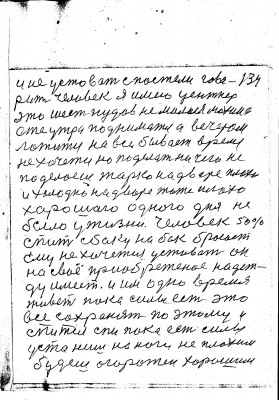 и не уставать с постели гова- 134
рит человек я имею центнер
это шест пудов не малыя махина
от утра поднимати а вечером
ложити на вси бывает время
не хочети но поднят ничего не
поделаеш жарко на дворе плохо
и холодно на дворе тоже плохо
хорошаго одного дня не
было у жизни. Человек 50%
спит сбоку на бок бросает
ему не хочется устават он
на своё приобретеное надеж-
ду имеет. и им одно время
живет пока силы ест это
все сохранят по этому и
спится спи пока ест силы
устаниш на ноги не плохим
будеш огорожен хорошим